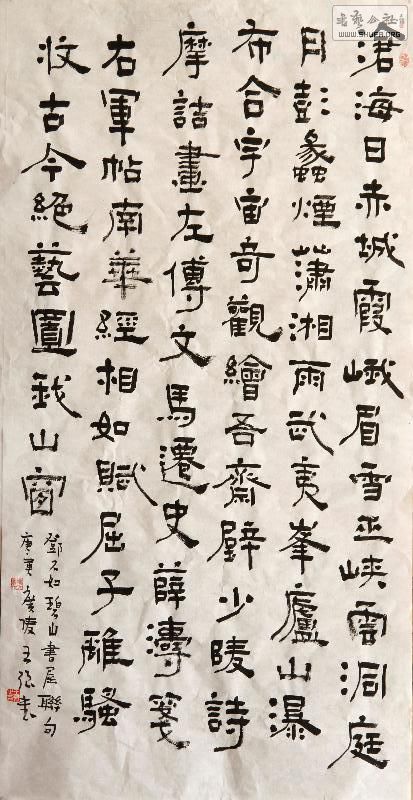 滄海日赤城霞峨眉雪巫峽雲洞庭
月彭蠡煙瀟湘雨武夷峯廬山瀑
布合宇宙奇觀繪吾齋壁少陵詩
摩詰畫左傳文馬遷史薛濤箋
右軍帖南華經相如賦屈子離騷
收古今絕藝置我山窗
鄧石如碧山書屋聯句
庚寅廣陵王強書